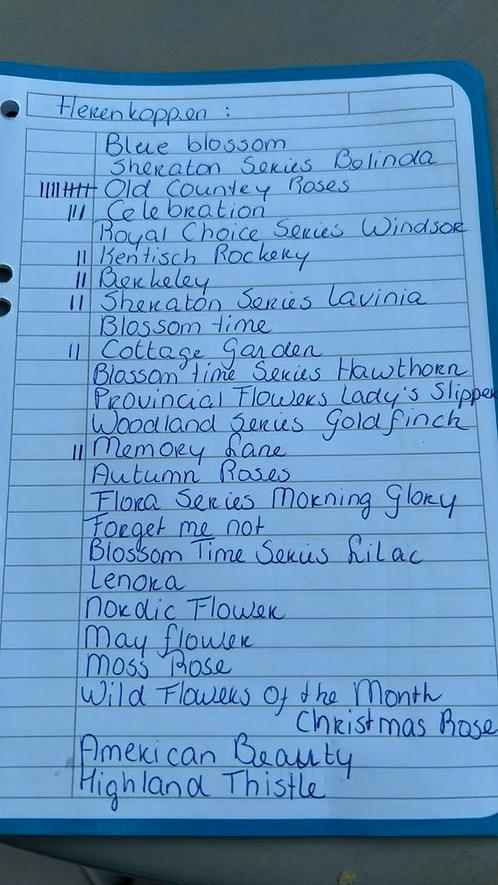 Herenkoppen :
Blue blossom
Sheraton Series Belinda
Old Country Roses
Celebration
Royal Choice Series Windsor
Kentisch Rockery
Berkeley
Sheraton Series Lavinia
Blossom time
Cottage Garden
Blossom time Series Hawthorn
Provincial Flowers Lady's Slipper
Woodland Series Goldfinch
Memory Lane
Autumn Roses
Flora Series Morning Glory
Forget me not
Blossom Time Series Lilac
Lenora
Nordic Flower
May flower
Moss Rose
Wild Flowers of the Month
Christmas Rose
American Beauty
Highland Thistle